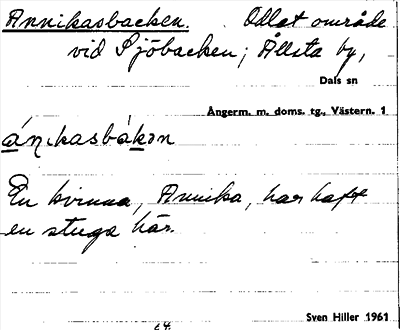 Annikasbacken. Odlat område
vid Sjöbacken; Ållsta by,
Dals sn
Ångerm. m. doms. tg., Västern. 1
ánikasbákən
En kvinna, Annika, har haft
en stuga här.
Sven Hiller 1961